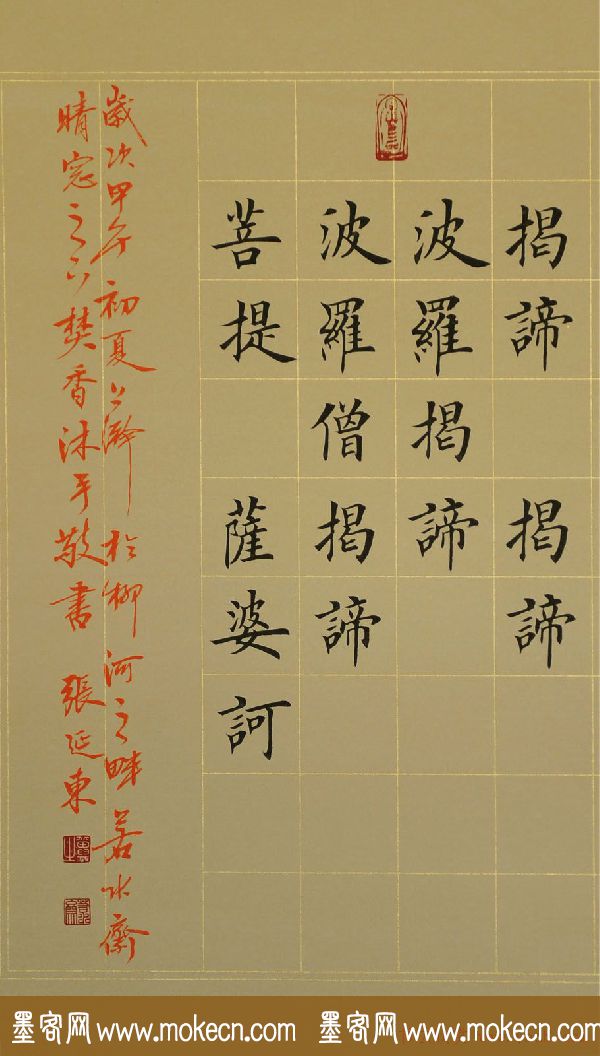 揭諦 揭諦
波羅揭諦
波羅僧揭諦
菩提 薩婆訶
歲次甲午初夏上澣於柳河之畔若水齋
晴窓之下焚香沐手敬書 張延東
墨客网 www.mokecn.com 墨客网 www.mokecn.com